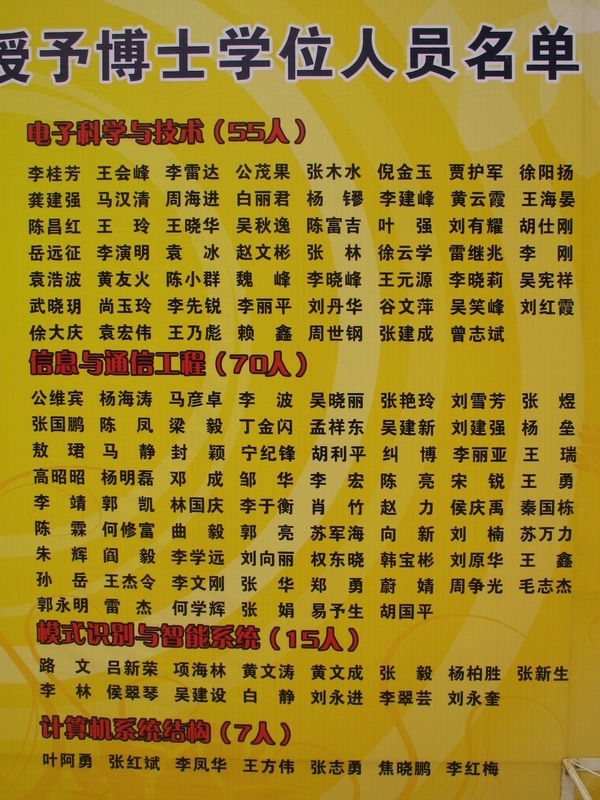 授予博士学位人员名单
电子科学与技术(55人)
李桂芳 王会峰 李雷达 公茂果 张木水 倪金玉 贾护军 徐阳扬
龚建强 马汉清 周海进 白丽君 杨 镠 李建峰 黄云霞 王海晏
陈昌红 王 玲 王晓华 吴秋逸 陈富吉 叶 强 刘有耀 胡仕刚
岳远征 李演明 袁 冰 赵文彬 张 林 徐云学 雷继兆 李 刚
袁浩波 黄友火 陈小群 魏 峰 李晓峰 王元源 李晓莉 吴宪祥
武晓玥 尚玉玲 李先锐 李丽平 刘丹华 谷文萍 吴笑峰 刘红霞
徐大庆 袁宏伟 王乃彪 赖 鑫 周世钢 张建成 曾志斌
信息与通信工程(70人)
公维宾 杨海涛 马彦卓 李 波 吴晓丽 张艳玲 刘雪芳 张 煜
张国鹏 陈 凤 梁 毅 丁金闪 孟祥东 吴建新 刘建强 杨 垒
敖 珺 马 静 封 颖 宁纪锋 胡利平 纠 博 李丽亚 王 瑞
高昭昭 杨明磊 邓 成 邹 华 李 宏 陈 亮 宋 锐 王 勇
李 靖 郭 凯 林国庆 李于衡 肖 竹 赵 力 侯庆禹 秦国栋
陈 霖 何修富 曲 毅 郭 亮 苏军海 向 新 刘 楠 苏万力
朱 辉 阎 毅 李学远 刘向丽 权东晓 韩宝彬 刘原华 王 鑫
孙 岳 王杰令 李文刚 张 华 郑 勇 蔚 婧 周争光 毛志杰
郭永明 雷 杰 何学辉 张 娟 易予生 胡国平
模式识别与智能系统(15人)
路 文 吕新荣 项海林 黄文涛 黄文成 张 毅 杨柏胜 张新生
李 林 侯翠琴 吴建设 白 静 刘永进 李翠芸 刘永奎
计算机系统结构(7人)
叶阿勇 张红斌 李凤华 王方伟 张志勇 焦晓鹏 李红梅